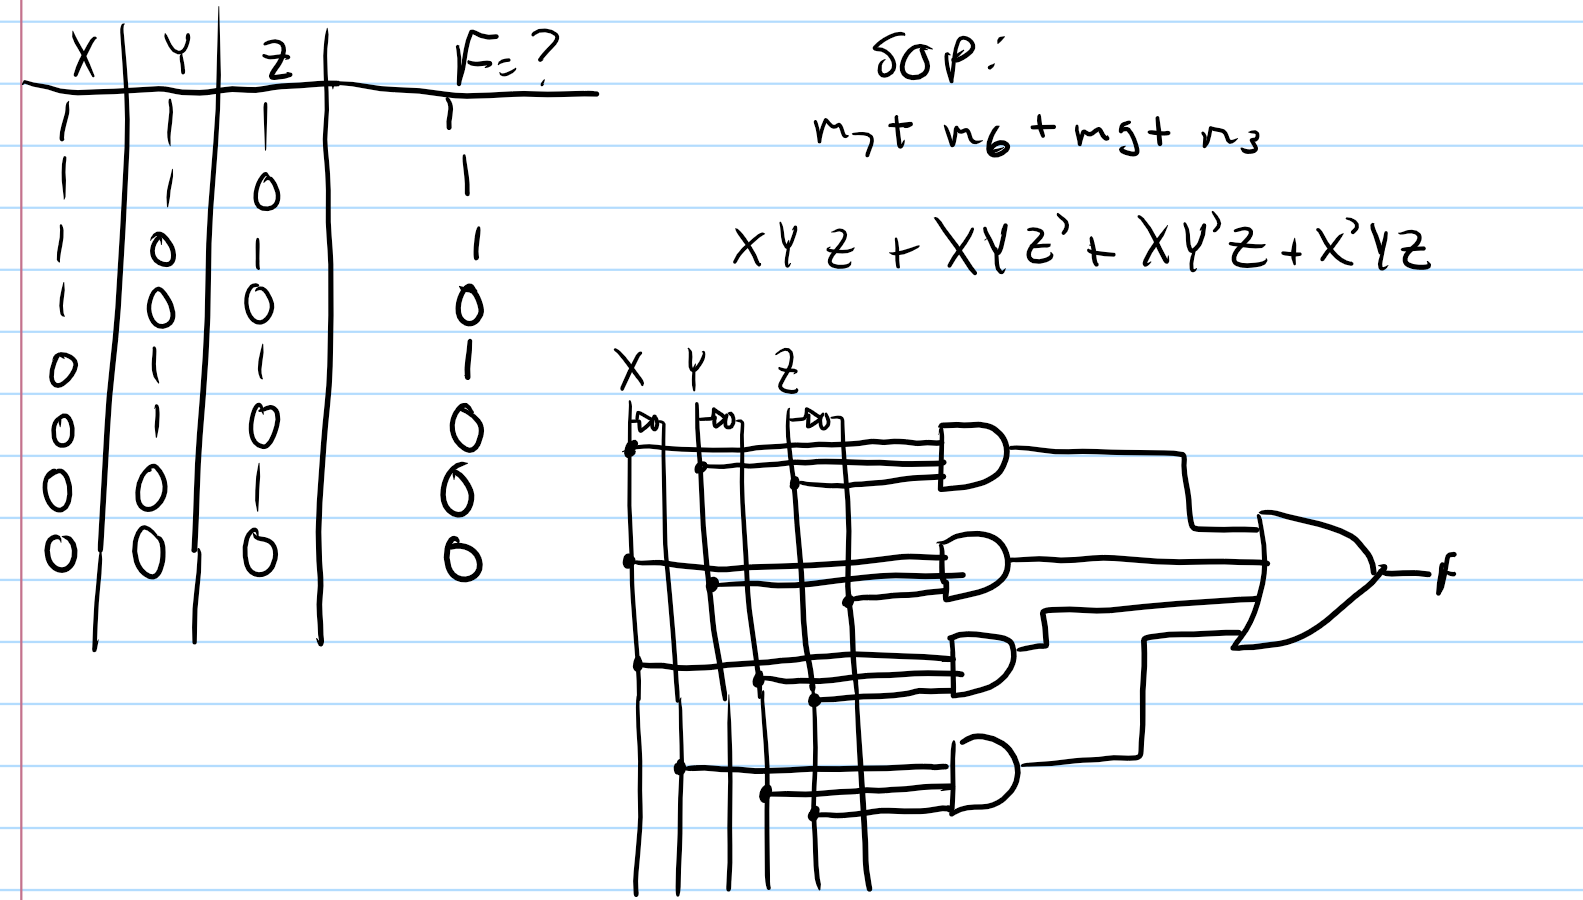 X Y Z F=?
1 1 1 1
1 1 0 1
1 0 1 1
1 0 0 0
0 1 1 1
0 1 0 0
0 0 1 0
0 0 0 0
SOP:
m7 + m6 + m5 + m3
XYZ + XYZ' + XY'Z + X'YZ
X Y Z
F